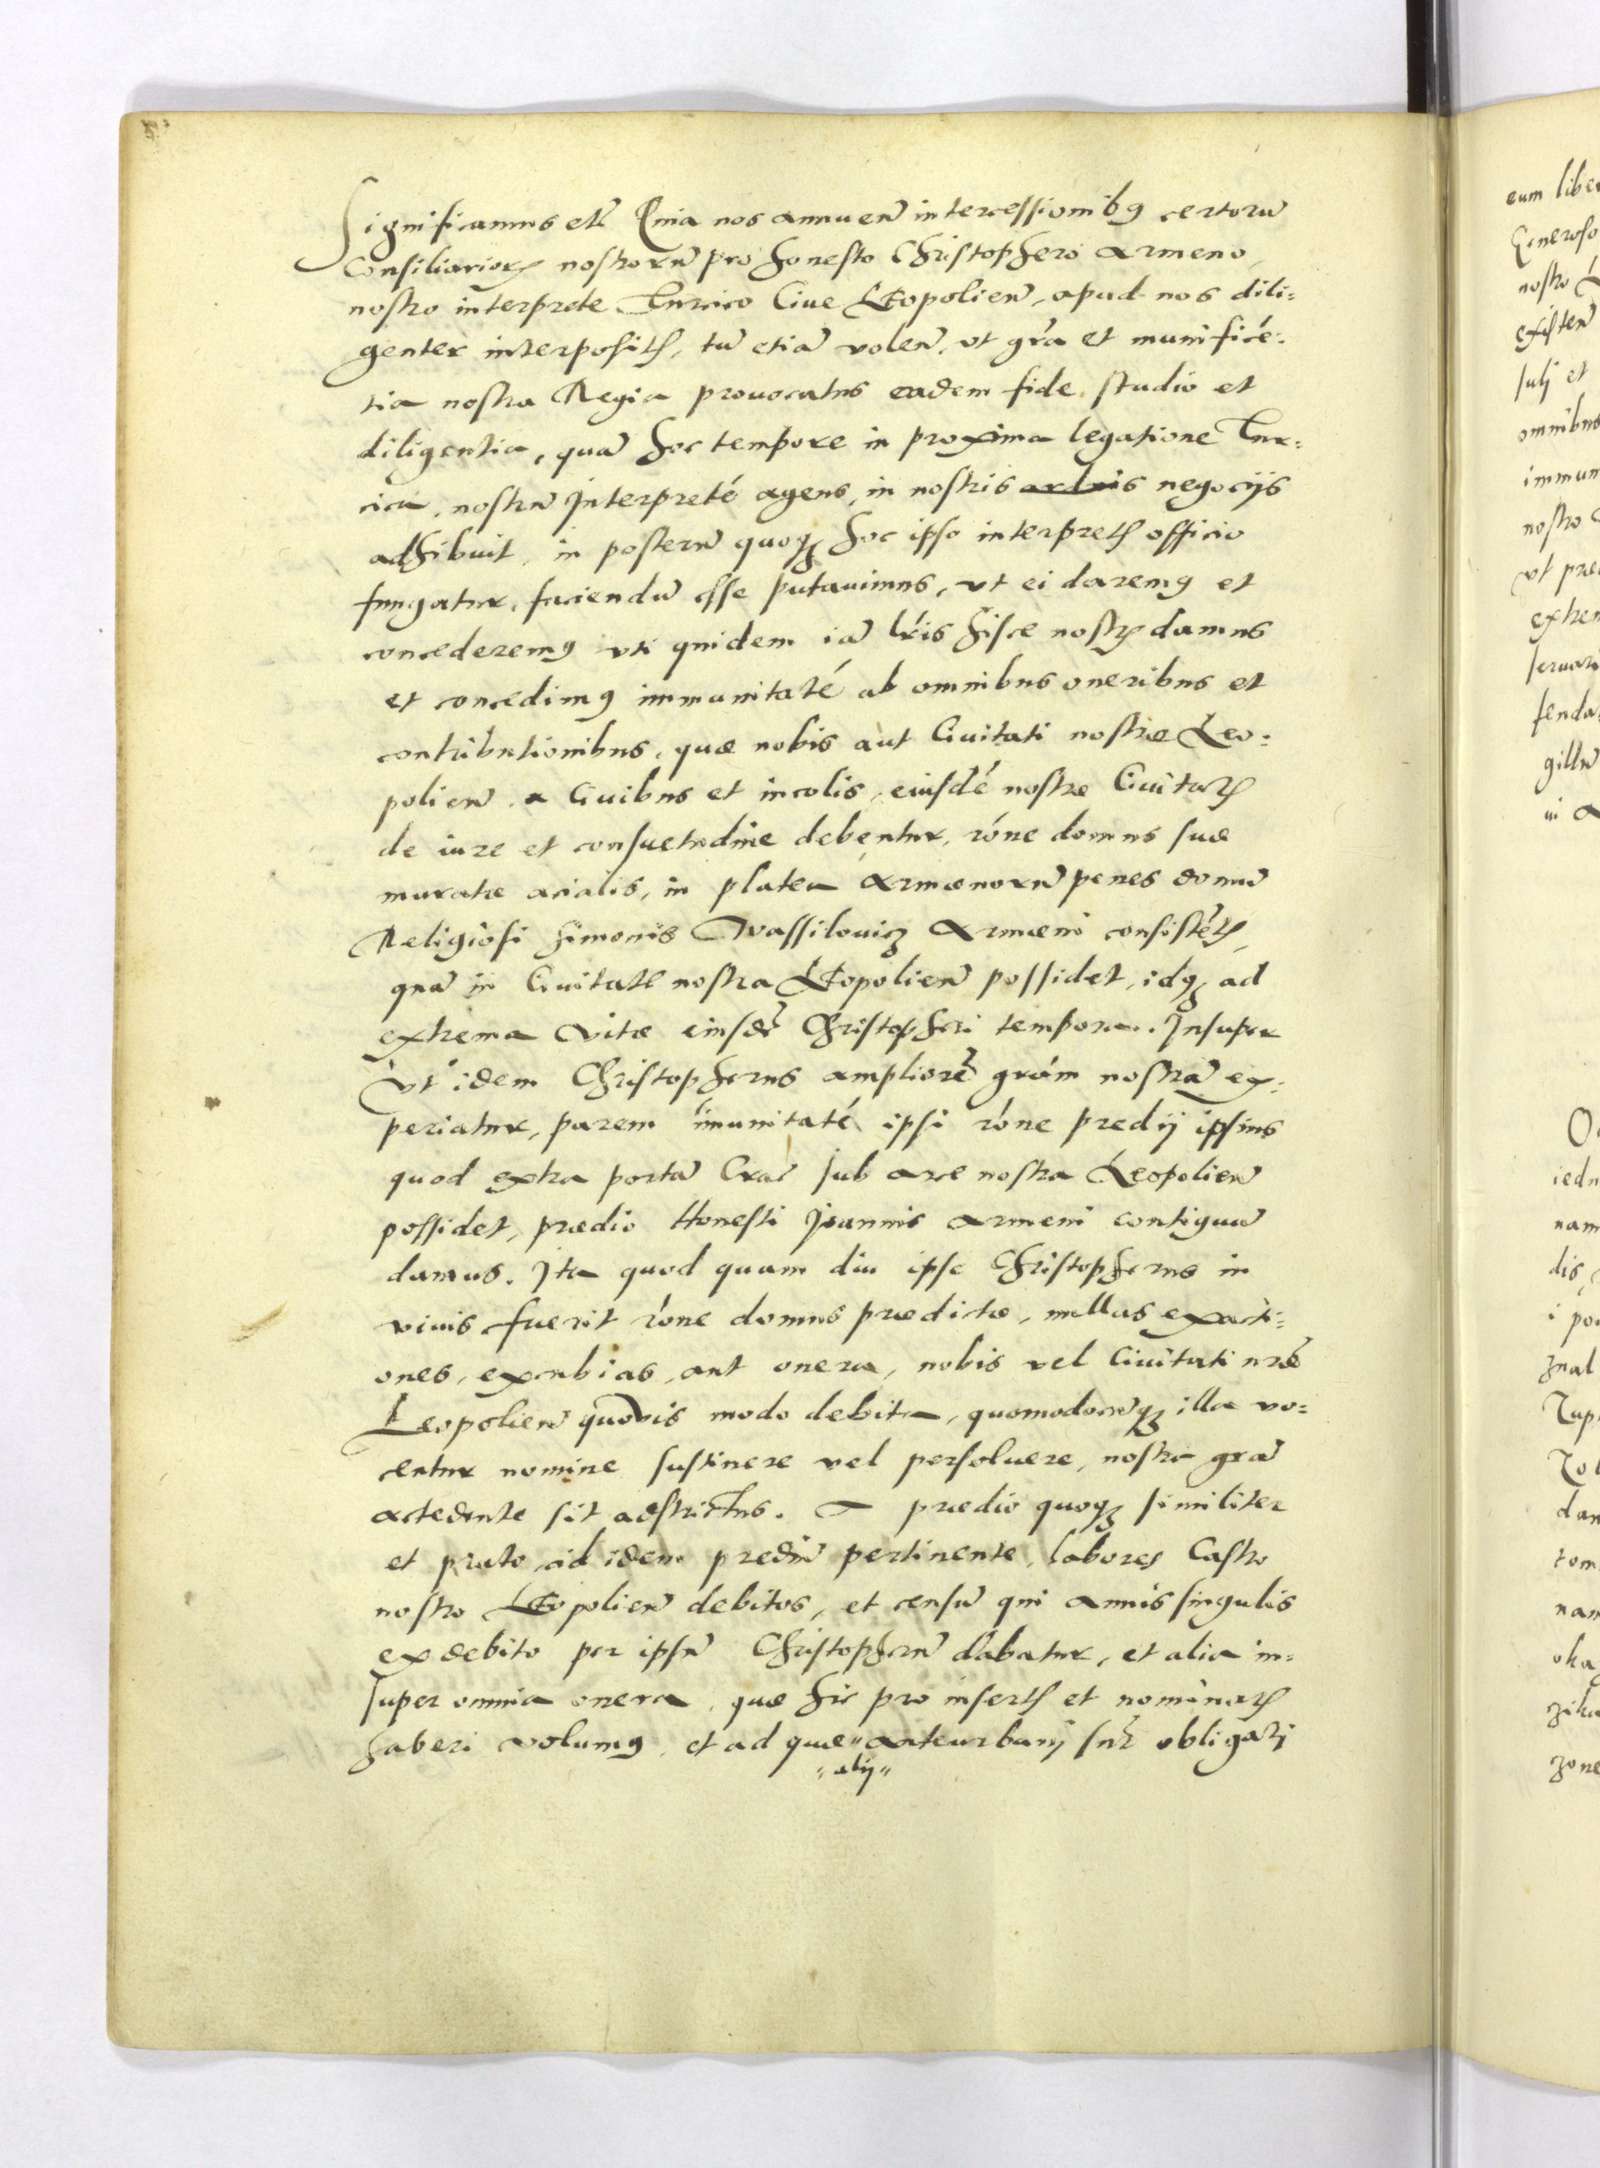 Significamus etc̃ Quia nos annuen̄ intercessionibꝯ certorū
Consiliarioꝝ nostrorū pro honesto Christophero Armeno
nostro interprete Turcico Ciue Leopolien̄, apud nos dili=
genter interpositis, tū etiā volen̄, vt gr̃a et munificẽ=
tia nostra Regia prouocatus eadem fide, studio et
diligentia, quā hoc tempore in proxima legatione Tur=
cica, nostrū Interpretẽ agens, in nostris arduis negocijs
adhibuit, in posterū quoqꝫ hoc ipso interpretis officio
fungatur, faciendū esse putauimus, vt ei daremꝯ et
concederemꝯ vti quidem iā lr̃is hisce nostris damus
et concedimꝯ immunitatẽ ab omnibus oneribus et
contributionibus, quæ nobis aut Ciuitati nostræ Leo=
polien̄ a Ciuibus et incolis, eiusdẽ nostræ Ciuitatis
de iure et consuetudine debentur, rõne domus suæ
muratæ acialis, in platea Armænorū penes domū
Religiosi Simonis Wassilouicz Armæni consistẽtis,
quā in Ciuitate nostra Leopolien̄ possidet, idqꝫ ad
extrema vitæ eiusdẽ Christopheri tempora. Insuper
vt idem Christopherus ampliorẽ grãm nostrā ex=
periatur, parem im̃unitatẽ ipsi rõne predij ipsius
quod extra portā Crac̃ sub arce nostra Leopolien̄
possidet, prædio Honesti Joannis Armeni contiguū
damus. Ita quod quam diu ipse Christopherus in
viuis fuerit rõne domus prædictæ, nullas exacti=
ones, excubias, aut onera, nobis vel Ciuitati nr̃æ
Leopolien̄ quovis modo debita, quomodocūqꝫ illa vo=
centur nomine sustinere vel persoluere, nostra gr̃a
accedente sit adstrictus. A prædio quoqꝫ similiter
et prato ad idem prediū pertinente, labores Castro
nostro Leopolien̄ debitos, et censū qui annis singulis
ex debito per ipsū Christopherū dabatur, et alia in=
super omnia onera, quæ hic pro insertis et nominatis
haberi volumꝯ, et ad quæ " anteurbanij sũt obligati
" alij "